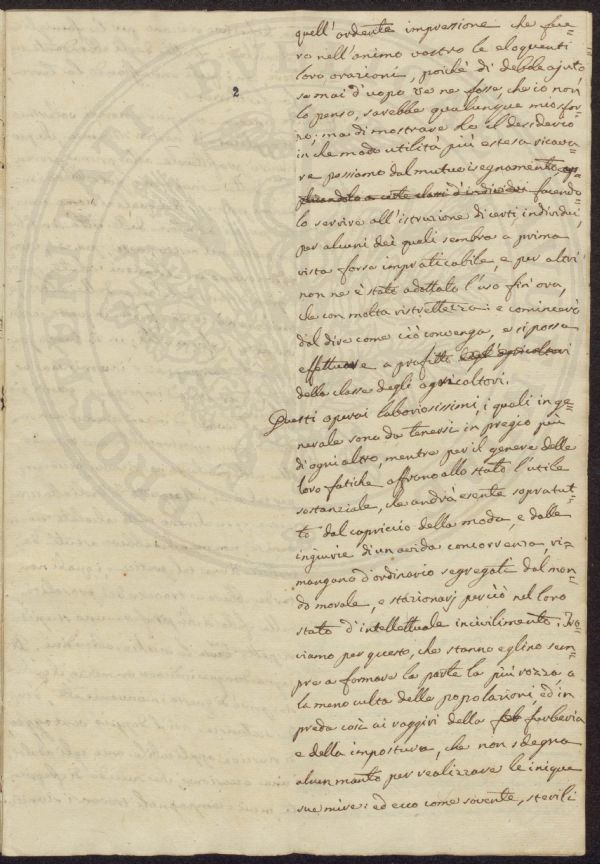 2
quell'ardente impressione che fece=
ro nell'animo vostro le eloquenti
loro orazioni, poichè di debole ajuto
se mai d'uopo ve ne fosse, che io non
lo penso, sarebbe qualunque mio sfor=
zo; ma di mostrare ho il desiderio
in che modo utilità più estesa ricava=
re possiamo dal mutuo insegnamento ap
plicandolo a certe classi d'individui facendo=
lo servire all'istruzione di certi individui,
per alcuni dei quali sembra a prima
vista forse impraticabile, e per altri
non ne è stato adottato l'uso fin'ora,
che con molta ristrettezza: e comincerò
dal dire come ciò convenga, e si possa
effettuare a profitto degl'agricoltori
della classe degli agricoltori.
Questi operai laboriosissimi, i quali in ge=
nerale sono da tenersi in pregio più
di ogni altro, mentre per il genere delle
loro fatiche offrono allo stato l'utile
sostanziale, che andrà esente sopratut=
to dal capriccio della moda, e dalle
ingiurie di un'avida concorrenza, ri=
mangono d'ordinario segregati dal mon=
do morale, e stazionarj perciò nel loro
stato d'intellettuale incivilimento: Tro=
viamo per questo, che stanno eglino sem=
pre a formare la parte la più rozza, e
la meno culta delle popolazioni, ed in
preda così ai raggiri della furberia
e della impostura, che non sdegna
alcun manto per realizzare le inique
sue mire: ed ecco come sovente, sterili